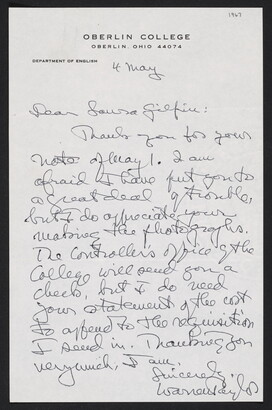 1967
OBERLIN COLLEGE
OBERLIN, OHIO 44074
DEPARTMENT OF ENGLISH
4 May
Dear Laura Gilpin:
Thank you for your
note of May 1. I am
afraid I have put you to
a great deal of trouble,
but I do appreciate your
making the photographs.
The Controllers office of the
College will send you a
check, but I do need
your statement of the cost
to append to the requisition
I send in. Thanking you
very much, I am,
Sincerely,
Warner Taylor